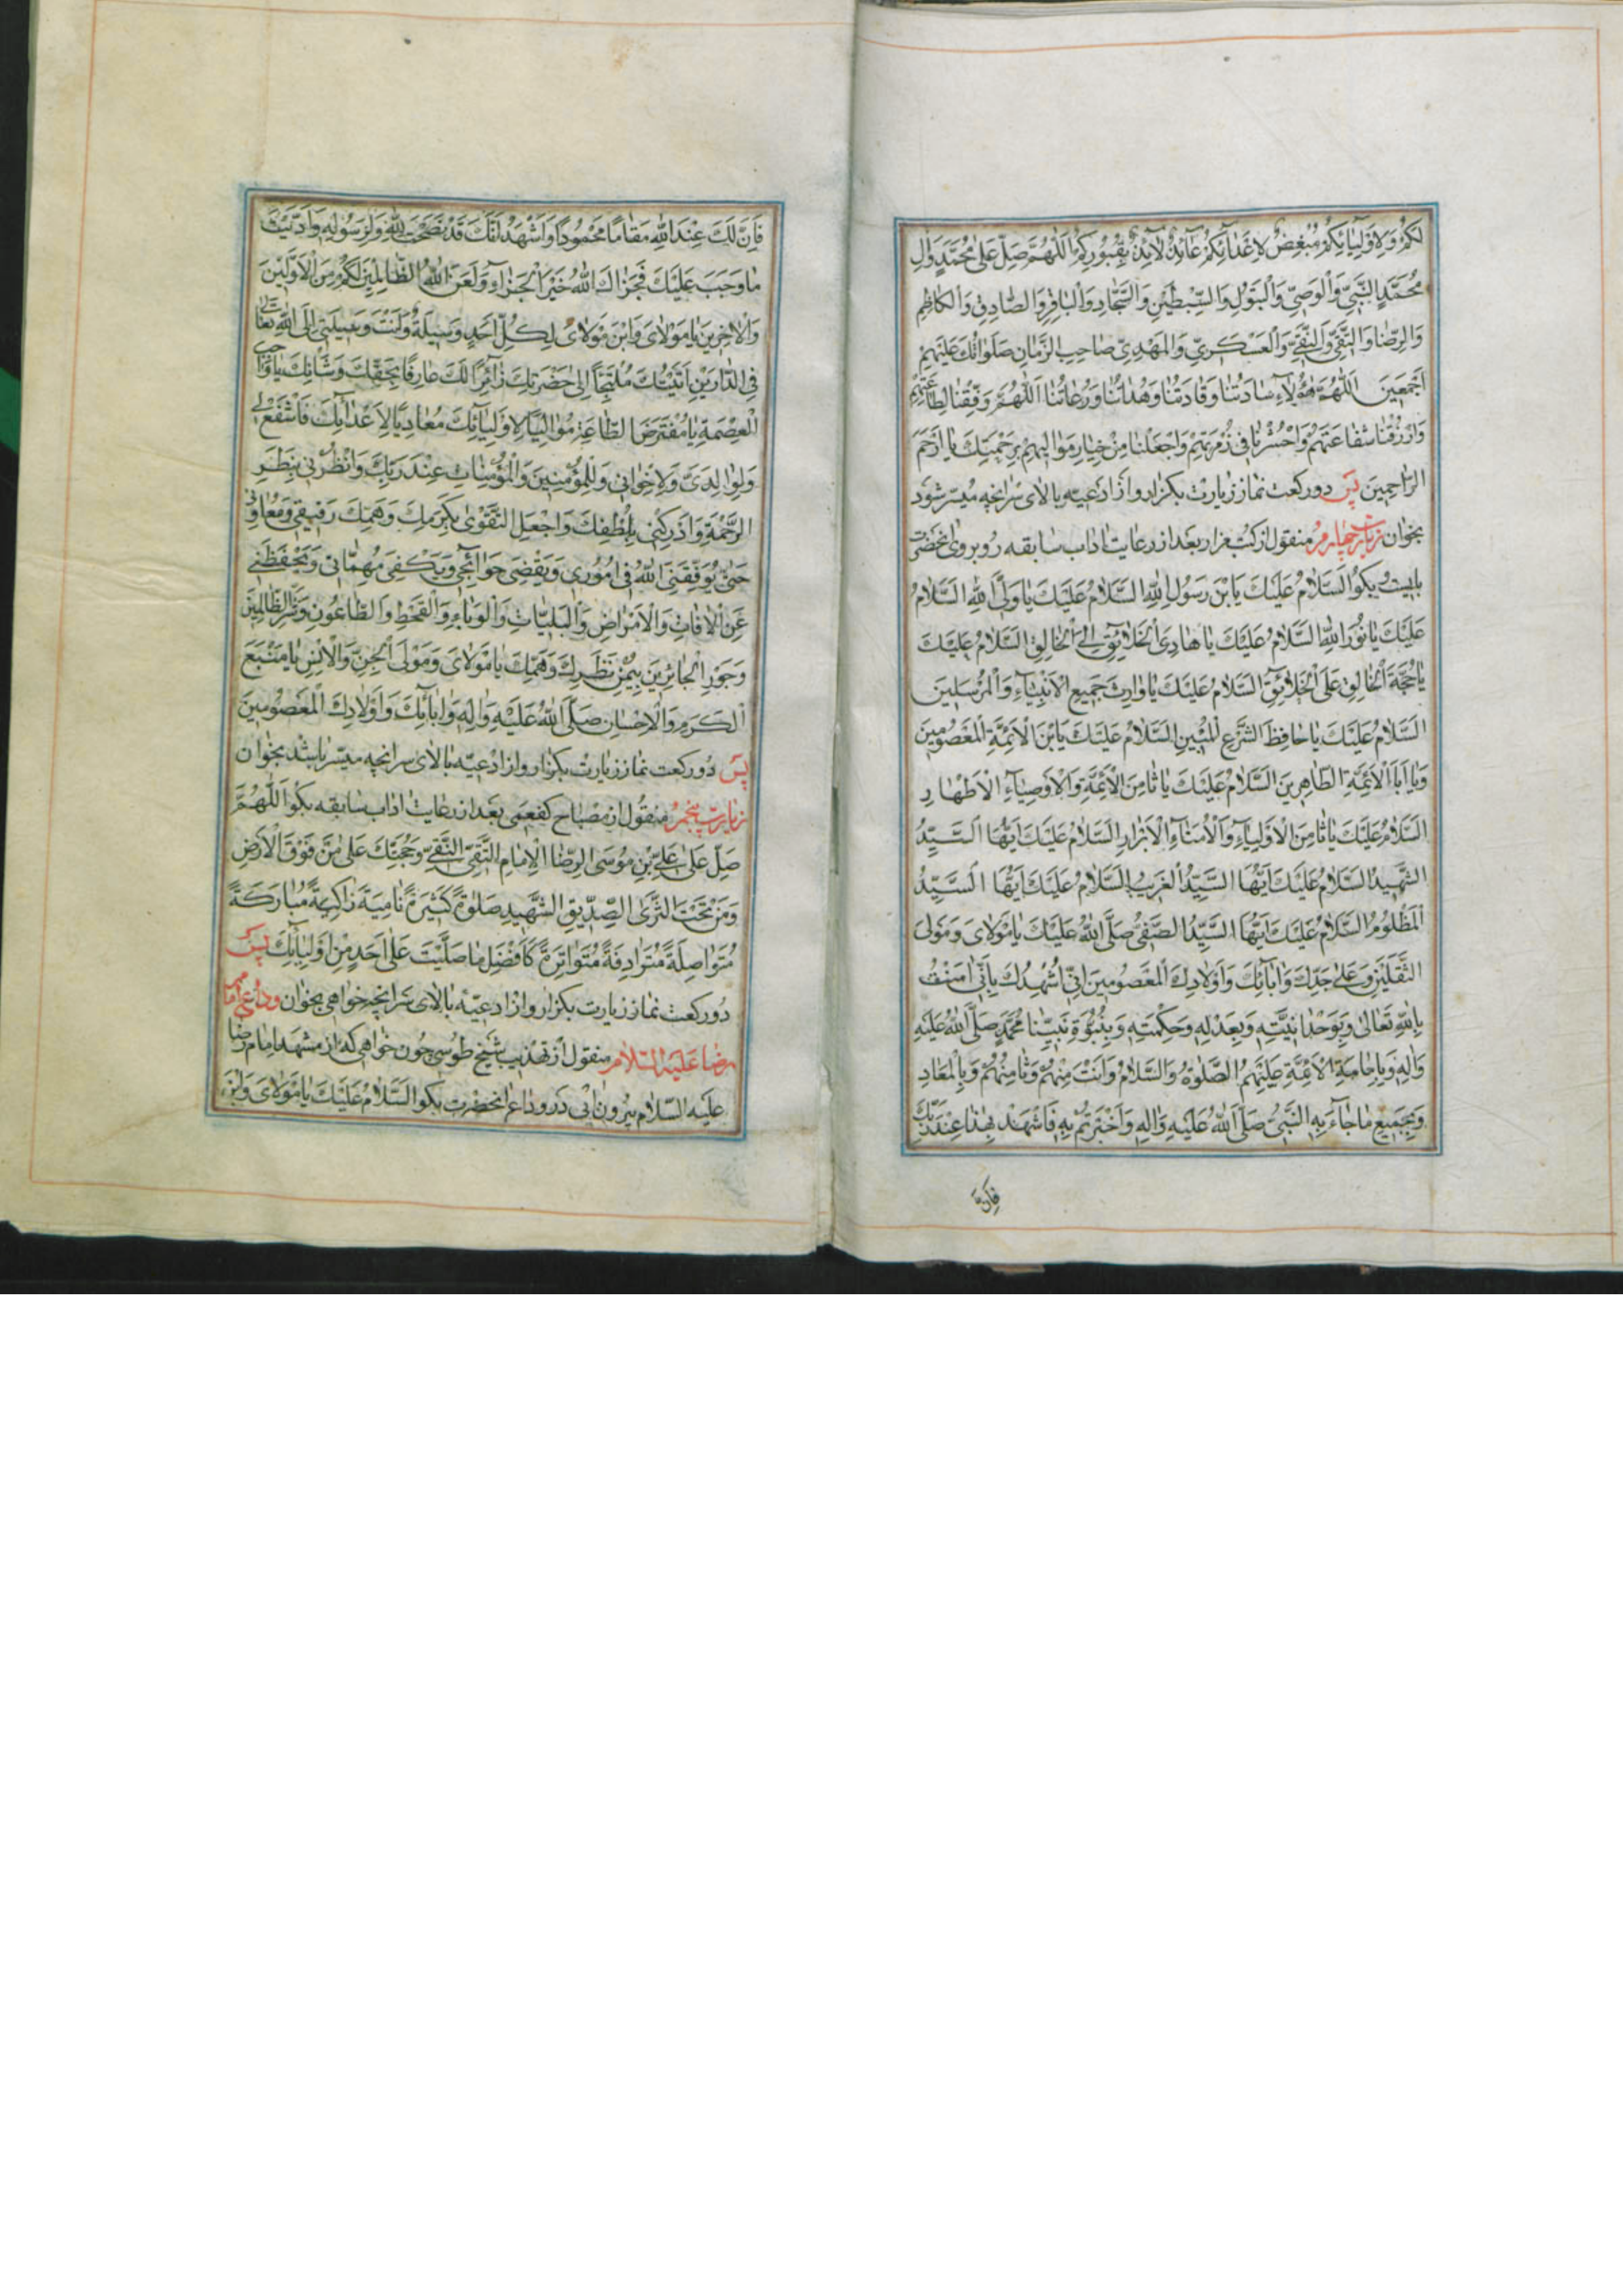 لَكُمْ وَلِاَوْلِيٰائِكُمْ مُبْغِضٌ لِاَعْدٰآئِكُمْ عٰآئِذٌ لٰآئِذٌ بِقُبُورِكُمْ اَللّٰهُمَّ صَلِّ عَلىٰ مُحَمَّدٍ وَاٰلِ
مُحَمَّدٍ النَّبِىِّ وَالْوَصِىِّ وَالْبَتُولِ وَالسِّبْطَيْنِ وَالسَّجّٰادِ وَالْبٰاقِرِ وَالصّٰادِقِ وَالْكٰاظِمِ
وَالرِّضٰا وَالتَّقِىِّ وَالنَّقِىِّ وَالْعَسْكَرِىِّ وَالْمَهْدِىِّ صٰاحِبِ الزَّمٰانِ صَلَوٰاتُكَ عَلَيْهِمْ
اَجْمَعِينَ اَللّٰهُمَّ هٰؤُلٰاءِ سٰادَتُنٰا وَقٰادَتُنٰا وَهُدٰاتُنٰا وَرُعٰاتُنٰا اَللّٰهُمَّ وَفِّقْنٰا لِطٰاعَتِهِمْ
وَارْزُقْنٰا شَفٰاعَتَهُمْ وَاحْشُرْنٰا فِى زُمْرَتِهِمْ وَاجْعَلْنٰا مِنْ خِيٰارِ مَوٰالِيهِمْ بِرَحْمَتِكَ يٰا اَرْحَمَ
الرّٰاحِمِينَ پس دو ركعت نماز زيارت بكزار و از ادعيه بالاى سر انچه ميسر شود
بخوان زيارت چهارم منقول از كتب مزار بعد از رعايت اداب سابقه رو بروى انحضرت
بايست و بكو اَلسَّلٰامُ عَلَيْكَ يَابْنَ رَسُولِ اللّٰهِ اَلسَّلٰامُ عَلَيْكَ يٰا وَلِىَّ اللّٰهِ اَلسَّلٰامُ
عَلَيْكَ يٰا نُورَ اللّٰهِ اَلسَّلٰامُ عَلَيْكَ يٰا هٰادِىَ الْخَلٰايِقِ اِلَى الْخٰالِقِ اَلسَّلٰامُ عَلَيْكَ
يٰا حُجَّةَ الْخٰالِقِ عَلَى الْخَلٰائِقِ اَلسَّلٰامُ عَلَيْكَ يٰا وٰارِثَ جَمِيعِ الْاَنْبِيٰاءِ وَالْمُرْسَلِينَ
اَلسَّلٰامُ عَلَيْكَ يٰا حٰافِظَ الشَّرْعِ الْمُبِينِ اَلسَّلٰامُ عَلَيْكَ يَابْنَ الْاَئِمَّةِ الْمَعْصُومِينَ
وَيٰا اَبَا الْاَئِمَّةِ الطّٰاهِرِينَ اَلسَّلٰامُ عَلَيْكَ يٰا ثٰامِنَ الْاَئِمَّةِ وَالْاَوْصِيٰآءِ الْاَطْهٰارِ
اَلسَّلٰامُ عَلَيْكَ يٰا ثٰامِنَ الْاَوْلِيٰآءِ وَالْاُمَنٰآءِ الْاَبْرٰارِ اَلسَّلٰامُ عَلَيْكَ اَيُّهَا السَّيِّدُ
الشَّهِيدُ اَلسَّلٰامُ عَلَيْكَ اَيُّهَا السَّيِّدُ الْغَرِيبُ اَلسَّلٰامُ عَلَيْكَ اَيُّهَا السَّيِّدُ
الْمَظْلُومُ اَلسَّلٰامُ عَلَيْكَ اَيُّهَا السَّيِّدُ الصَّفِىُّ صَلَّى اللّٰهُ عَلَيْكَ يٰا مَوْلٰاىَ وَمَوْلَى
الثَّقَلَيْنِ وَعَلىٰ جَدِّكَ وَاٰبٰآئِكَ وَاَوْلٰادِكَ الْمَعْصُومِينَ اِنّىِ اُشْهِدُكَ بِاَنِّى اٰمَنْتُ
بِاللّٰهِ تَعٰالىٰ وَبِوَحْدٰانِيَّتِهِ وَبِعَدْلِهِ وَحِكْمَتِهِ وَبِنُبُوَّةِ نَبِيِّنٰا مُحَمَّدٍ صَلَّى اللّٰهُ عَلَيْهِ
وَاٰلِهِ وَبِاِمٰامَةِ الْاَئِمَّةِ عَلَيْهِمُ الصَّلٰوةُ وَالسَّلٰامُ وَاَنْتَ مِنْهُمْ وَثٰامِنُهُمْ وَبِالْمَعٰادِ
وَبِجَمِيعِ مٰا جٰآءَ بِهِ النَّبِىُّ صَلَّى اللّٰهُ عَلَيْهِ وَاٰلِهِ وَاَخْبَرْتُمْ بِهِ فَاشْهَدْ بِهٰذٰا عِنْدَ رَبِّكَ
فَاِنَّ
فَاِنَّ لَكَ عِنْدَ اللّٰهِ مَقٰامًا مَحْمُودًا وَاَشْهَدُ اَنَّكَ قَدْ نَصَحْتَ لِلّٰهِ وَلِرَسُولِهِ وَاَدَّيْتَ
مٰا وَجَبَ عَلَيْكَ فَجَزٰاكَ اللّٰهُ خَيْرَ الْجَزٰآءِ وَلَعَنَ اللّٰهُ الظّٰالِمِينَ لَكُمْ مِنَ الْاَوَّلِينَ
وَالْاٰخِرِينَ يٰا مَوْلٰاىَ وَابْنَ مَوْلٰاىَ لِكُلِّ اَحَدٍ وَسِيلَةٌ وَاَنْتَ وَسِيلَتِى اِلَى اللّٰهِ تَعٰالىٰ
فِى الدّٰارَيْنِ اَتَيْتُكَ مُلْتَجِأً اِلىٰ حَضْرَتِكَ زٰآئِرًا لَكَ عٰارِفًا بِحَقِّكَ وَشَأْنِكَ يٰا وٰاجِبَ
الْعِصْمَةِ يٰا مُفْتَرَضَ الطّٰاعَةِ مُوٰالِيًا لِاَوْلِيٰائِكَ مُعٰادِيًا لِاَعْدٰآئِكَ فَاشْفَعْ لِى
وَلِوٰالِدَىَّ وَلِاِخْوٰانِى وَلِلْمُؤْمِنِينَ وَالْمُؤْمِنٰاتِ عِنْدَ رَبِّكَ وَانْظُرْنِى بِنَظَرِ
الرَّحْمَةِ وَاَدْرِكْنِى بِلُطْفِكَ وَاجْعَلِ التَّقْوىٰ بِكَرَمِكَ وَهِمَّتِكَ رَفِيقِى وَمُعٰاوِنِى
حَتّىٰ يُوَفِّقَنِىَ اللّٰهُ فِى اُمُورِى وَيَقْضِىَ حَوٰائِجِى وَيَكْفِىَ مُهِمّٰاتِى وَيَحْفَظَنِى
عَنِ الْاٰفٰاتِ وَالْاَمْرٰاضِ وَالْبَلِيّٰاتِ وَالْوَبٰاءِ وَالْقَحْطِ وَالطّٰاعُونِ وَشَرِّ الظّٰالِمِينَ
وَجَوْرِ الْجٰائِرِينَ بِيُمْنِ نَظَرِكَ وَهِمَّتِكَ يٰا مَوْلٰاىَ وَمَوْلَى الْجِنِّ وَالْاِنْسِ يٰا مَنْبَعَ
الْكَرَمِ وَالْاِحْسٰانِ صَلَّى اللّٰهُ عَلَيْهِ وَاٰلِهِ وَاٰبٰآئِكَ وَاَوْلٰادِكَ الْمَعْصُومِينَ
پس دو ركعت نماز زيارت بكزار و از ادعيه بالاى سر انچه ميسر باشد بخوان
زيارت پنجم منقول از مصباح كفعمى بعد از رعايت اداب سابقه بكو اَللّٰهُمَّ
صَلِّ عَلىٰ عَلِىِّ بْنِ مُوسَى الرِّضَا الْاِمٰامِ التَّقِىِّ النَّقِىِّ وَحُجَّتِكَ عَلىٰ مَنْ فَوْقَ الْاَرْضِ
وَمَنْ تَحْتَ الثَّرىٰ الصِّدِّيقِ الشَّهِيدِ صَلٰوةً كَثِيرَةً نٰامِيَةً زٰاكِيَةً مُبٰارَكَةً
مُتَوٰاصِلَةً مُتَرٰادِفَةً مُتَوٰاتِرَةً كَاَفْضَلِ مٰا صَلَّيْتَ عَلىٰ اَحَدٍ مِنْ اَوْلِيٰآئِكَ پس
دو ركعت نماز زيارت بكزار و از ادعيه بالاى سر انچه خواهى بخوان وداع امام
رضا عليه السلام منقول از تهذيب شيخ طوسى چون خواهى كه از مشهد امام رضا
عليه السلام بيرون ائى در وداع انحضرت بكو اَلسَّلٰامُ عَلَيْكَ يٰا مَوْلٰاىَ وَابْنَ